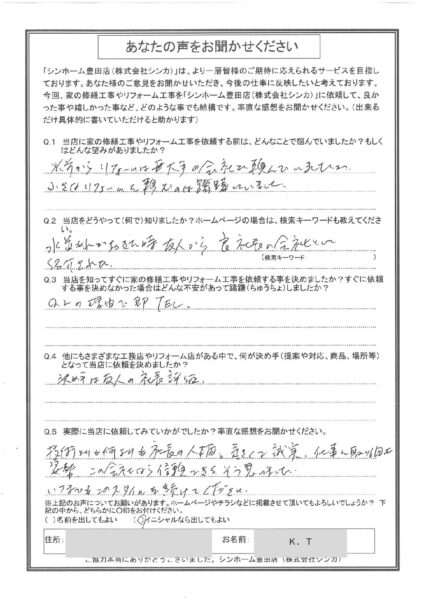 あなたの声をお聞かせください
「シンホーム豊田店(株式会社シンカ)」は、より一層皆様のご期待に応えられるサービスを目指し
ております。あなた様のご意見をお聞かせいただき、今後の仕事に反映したいと考えております。
今回、家の修繕工事やリフォーム工事を「シンホーム豊田店(株式会社シンカ)」に依頼して、良か
った事や嬉しかった事など、どのような事でも結構です。率直な感想をお聞かせください。(出来る
だけ具体的に書いていただけると助かります)
Q.1 当店に家の修繕工事やリフォーム工事を依頼する前は、どんなことで悩んでいましたか?もしく
はどんな望みがありましたか?
リフォームは 大手の会社に頼んでいましたが
小さなリフォームを頼むのは躊躇していました。
Q.2 当店をどうやって(何で)知りましたか?ホームページの場合は、検索キーワードも教えてくださ
い。
友人から 社長の会社を
(検索キーワード )
紹介された
Q.3 当店を知ってすぐに家の修繕工事やリフォーム工事を依頼する事を決めましたか?すぐに依頼
する事を決めなかった場合はどんな不安があって躊躇(ちゅうちょ)しましたか?
Q.2の理由で即TEL。
Q.4 他にもさまざまな工務店やリフォーム店がある中で、何が決め手(提案や対応、商品、場所等)
となって当店に依頼を決めましたか?
決め手は友人の社長評価。
Q.5 実際に当店に依頼してみていかがでしたか?率直な感想をお聞かせください。
技術よりも何よりも社長の人柄。気さくで誠実、仕事に取り組む
姿勢 この会社なら信頼できるそう思いました。
いつまでもこのスタイルを続けてください。
※上記のお声についてお願いがあります。ホームページやチラシなどに掲載させて頂いてもよろしいでしょうか? 下
記の中から、どちらかに〇印をお付けください。
( )名前を出してもよい (〇)イニシャルなら出してもよい
住所: お名前: K.T
ご協力本当にありがとうございました。シンホーム豊田店 (株式会社シンカ)